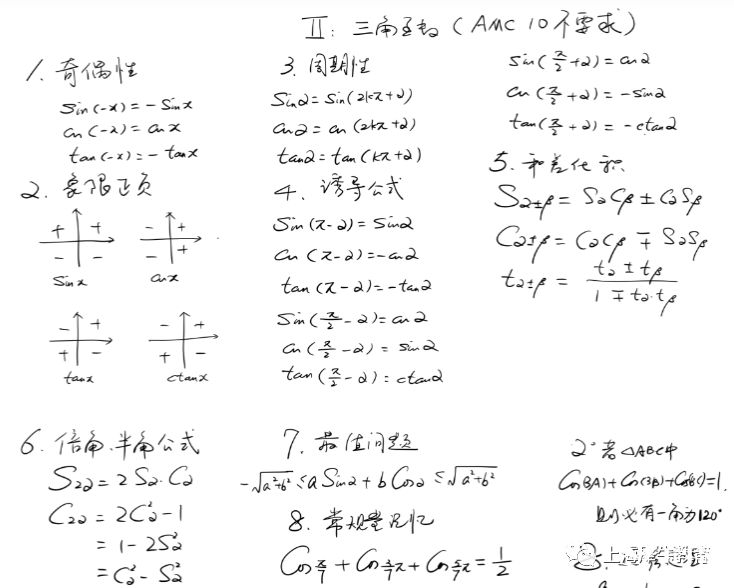 II: 三角函数 (AMC 10 不要求)
1. 奇偶性
sin(-x) = -sinx
cos(-x) = cosx
tan(-x) = -tanx
2. 象限正负
+ +
- -
sinx
- +
- +
cosx
- +
+ -
tanx
- +
+ -
ctanx
3. 周期性
sinα = sin(2kπ+α)
cosα = cos(2kπ+α)
tanα = tan(kπ+α)
4. 诱导公式
sin(π-α) = sinα
cos(π-α) = -cosα
tan(π-α) = -tanα
sin(π/2-α) = cosα
cos(π/2-α) = sinα
tan(π/2-α) = ctanα
sin(π/2+α) = cosα
cos(π/2+α) = -sinα
tan(π/2+α) = -ctanα
5. 和差化积
Sα±β = SαCβ ± CαSβ
Cα±β = CαCβ ∓ SαSβ
tα±β = (tα ± tβ)/(1 ∓ tα·tβ)
6. 倍角、半角公式
S2α = 2Sα·Cα
C2α = 2C²α-1
= 1-2S²α
= C²α-S²α
7. 最值问题
-√(a²+b²) ≤ a Sinα + b Cosα ≤ √(a²+b²)
8. 常规量记忆
Cos π/7 + Cos 3/7π + Cos 5/7π = 1/2
2° 若△ABC中
Cos(3A)+Cos(3B)+Cos(3C)=1,
则必有一角为120°